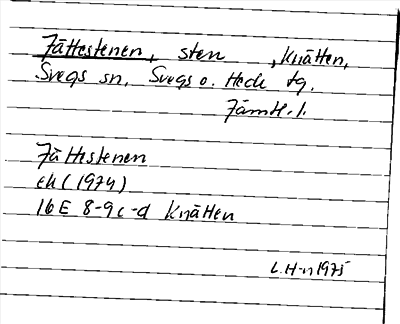 Jättestenen, sten , Knätten,
Svegs sn, Svegs o. Hede tg.
Jämtl. l.
Jättestenen
ek (1974)
16 E 8-9 c-d Knätten
L. H-n 1975